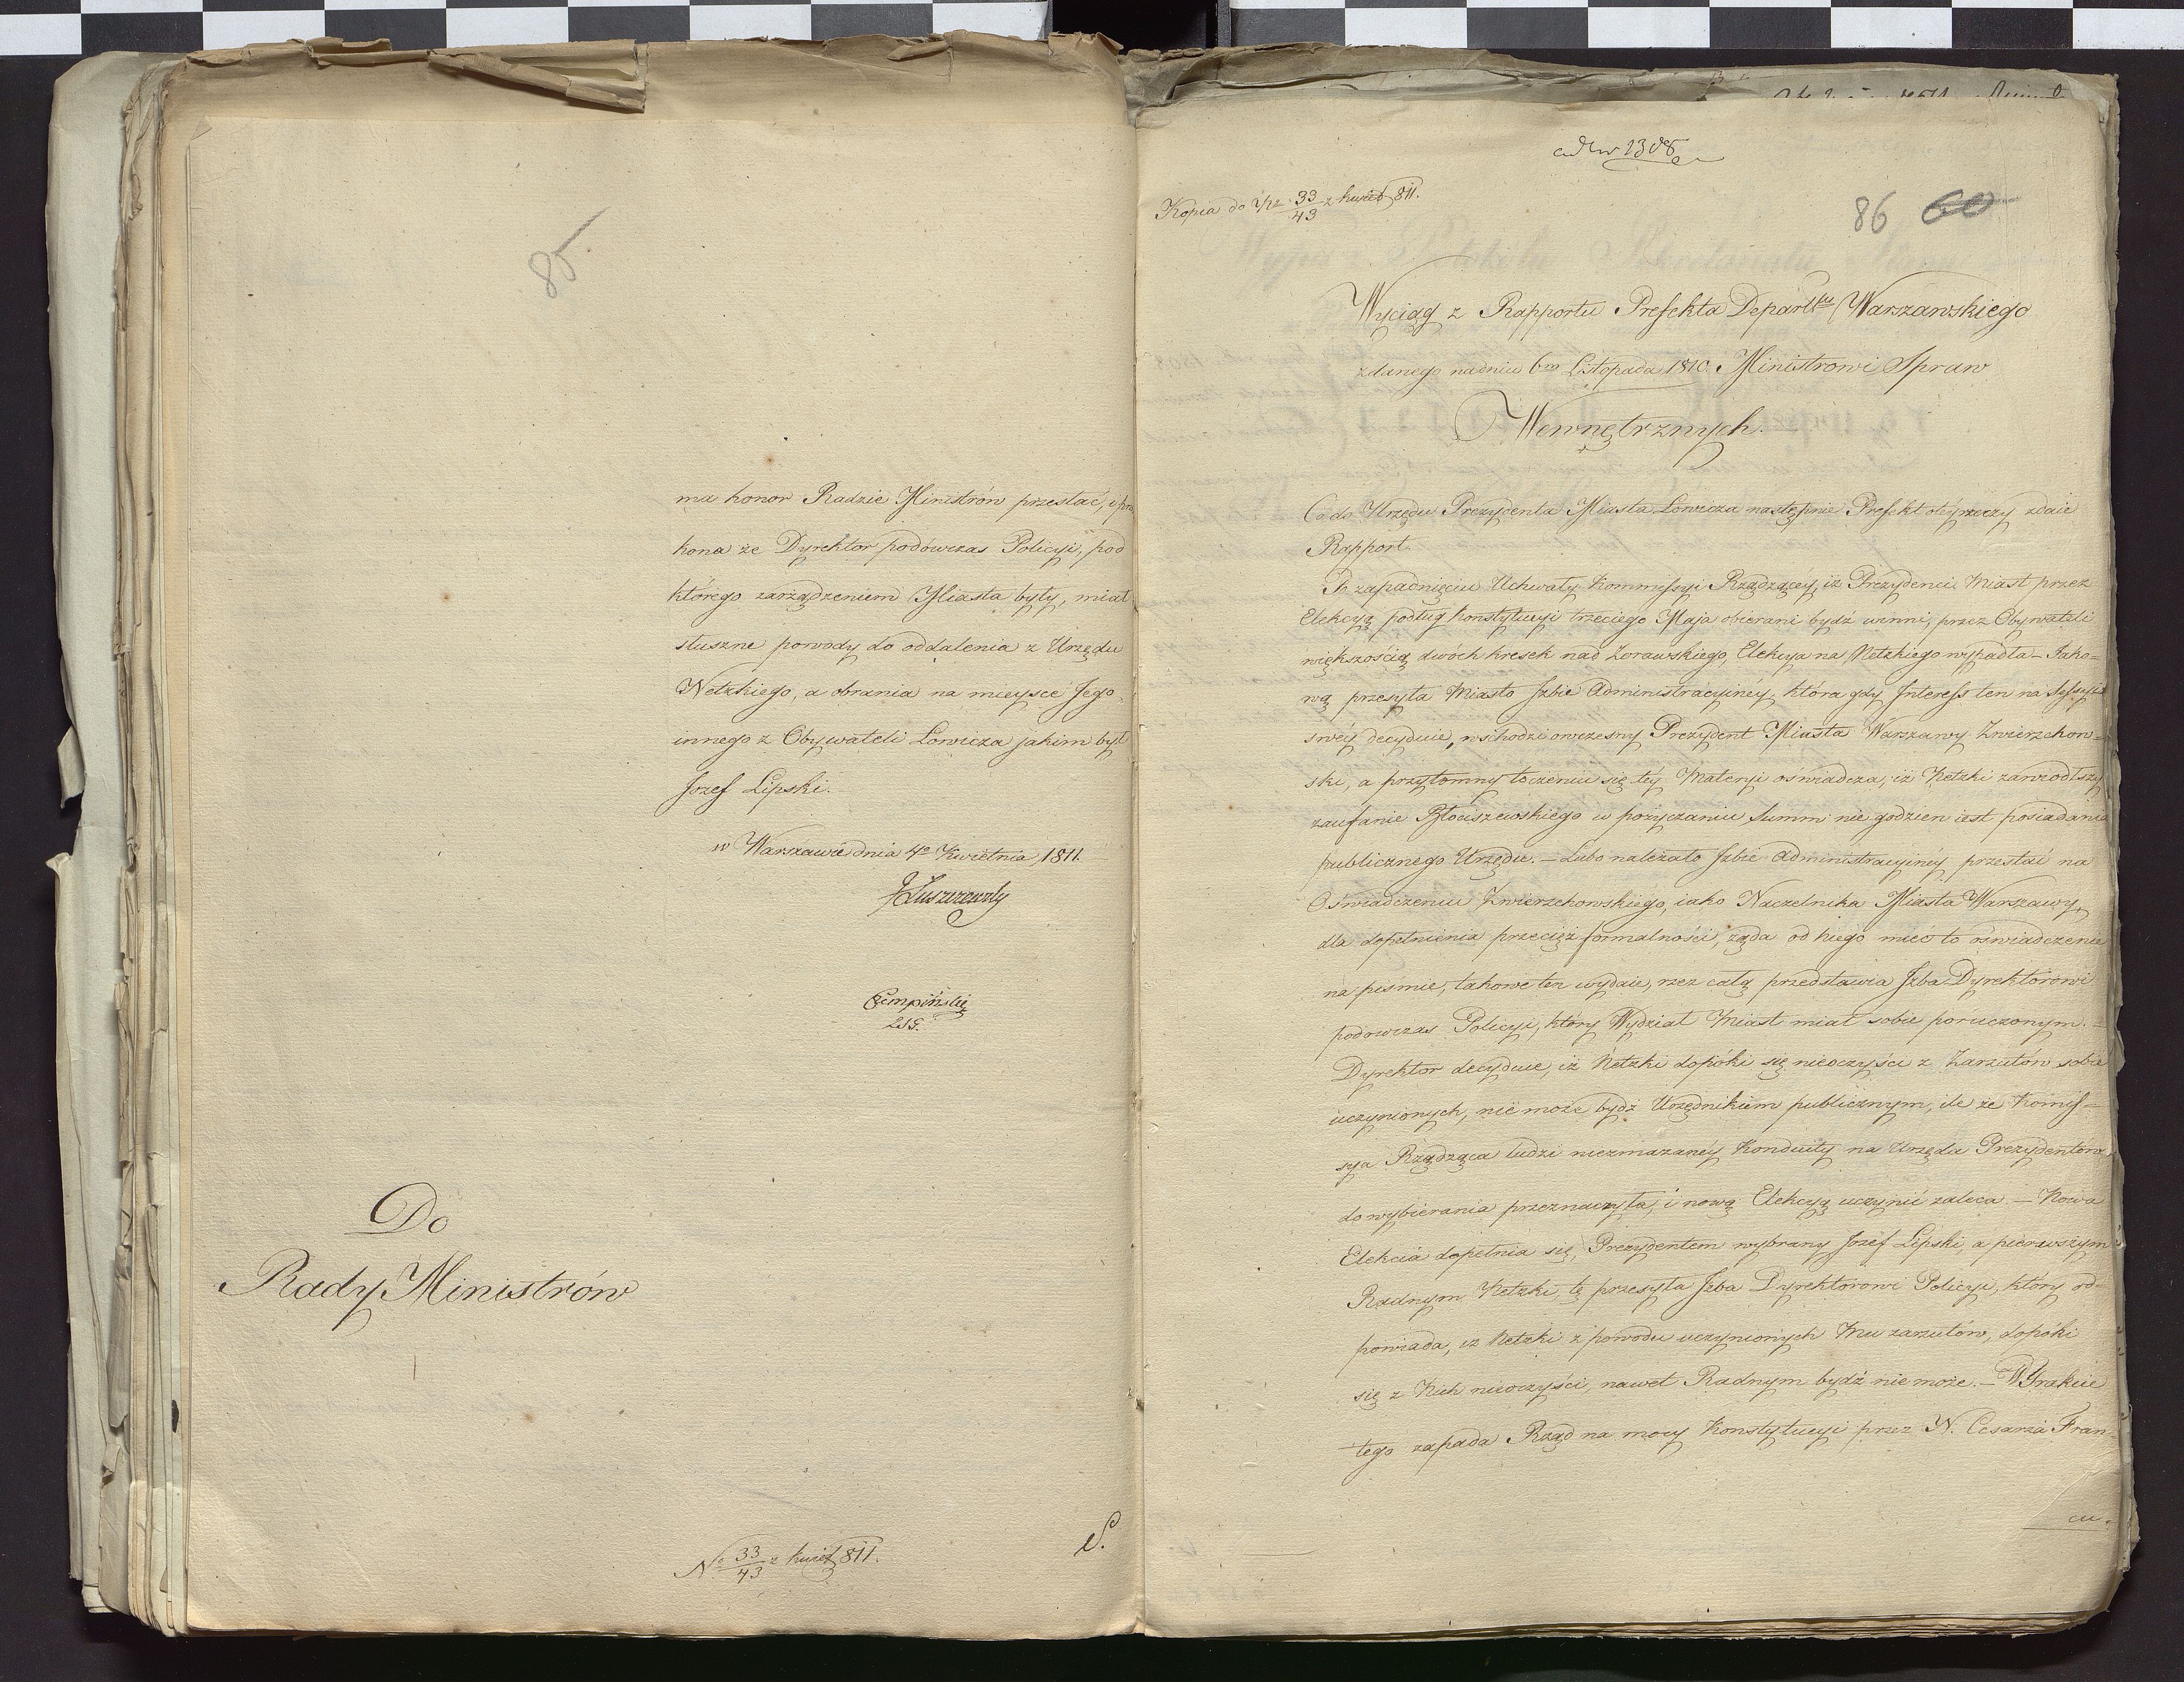 85
ma honor Radzie Ministrów przesłać, i prze
kona że Dyrektor podówczas Policyi, pod
którego zarządzeniem Miasta były, miał
słuszne powody do oddalenia z Urzędu
Netzkiego, a obrania na mieysce Jego
innego z Obywateli Łowicza jakim był
Jozef Lipski.
w Warszawie dnia 4o Kwietnia 1811.
JŁuszczewsky
LSG.
Do
Rady Ministrów
No 33/43 z kwiet 811.
S.
ad No 1308
Kopia do No 33/43 z kwiet 811.
86 60
Wyciąg z Rapportu Prefekta Departtu Warszawskiego
zdanego na dniu 6m Listopada 1810. Ministrowi Spraw
Wewnętrznych.
Co do Urzędu Prezydenta Miasta Łowicza następnie Prefekt o tey rzeczy zdaie
Rapport.
Po zapadnięciu Uchwały Kommissyi Rządzącéy, iż Prezydenci Miast przez
Elekcyą podług Konstytucyi trzeciego Maja obierani bydź winni, przez Obywateli
większością dwóch kresek nad Zorawskiego, Elekcya na Netzkiego wypadła – Tako=
wą przesyła Miasto Jzbie Administracyinéy, która gdy Jnteress ten na Sessyi
swéy decyduie, wchodzi owczesny Prezydent Miasta Warszawy Zwierzchow=
ski, a przytomny toczeniu się téy Materyi oświadcza, iż Netzki zawiodłszy
zaufanie Błociszewskiego w pożyczaniu Summ nie godzien iest posiadania
publicznego Urzędu. – Lubo należało Jzbie Administracyinéy przestać na
Oświadczeniu Zwierzchowskiego, iako Naczelnika Miasta Warszawy,
dla dopełnienia przecięż formalności, żąda od Niego mieć to oświadczenie
na piśmie, takowe ten wydaie, rzez całą przedstawia Jzba Dyrektorowi
podowczas Policyi, który Wydział Miast miał sobie poruczonym. –
Dyrektor decyduie, iż Netzki dopóki się nieoczyści z Zarzutów sobie
uczynionych, nie może bydź Urzędnikiem publicznym, ile że Komis=
sya Rządząca ludzi niezmazanéy Konduity na Urzęda Prezydentów
do wybierania przeznaczyła, i nową Elekcyą uczynić zaleca – Nowa
Elekcia dopełnia się, Prezydentem wybrany Jozef Lipski, a pierwszym
Radnym Netzki, tę przesyła Jzba Dyrektorowi Policyi, który od=
powiada, iż Netzki z powodu uczynionych Mu zarzutów, dopóki
się z Nich nieoczyści, nawet Radnym bydź nie może. – W trakcie
tego zapada Rząd na mocy Konstytucyi przez N. Cesarza Fran=
cu=